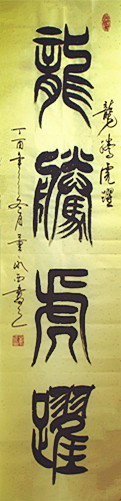 龍騰虎躍
龍騰虎躍
丁酉年之冬月